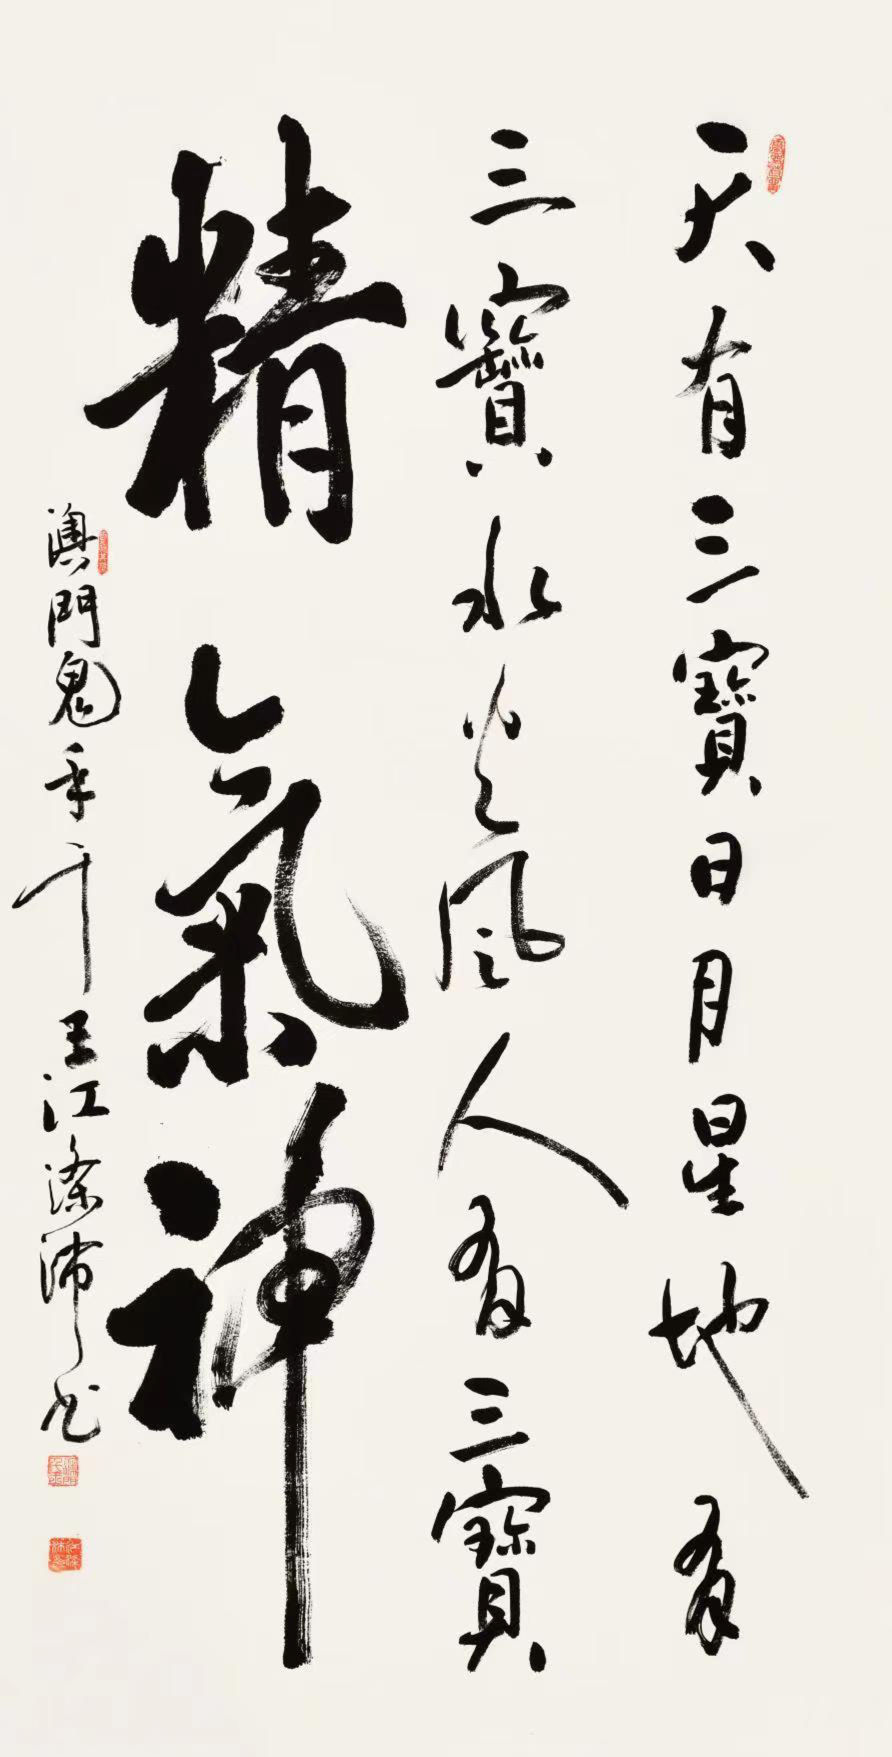 天有三寶日月星地有
三寶水火風人有三寶
精氣神
澳門鬼手千王江滌沛书